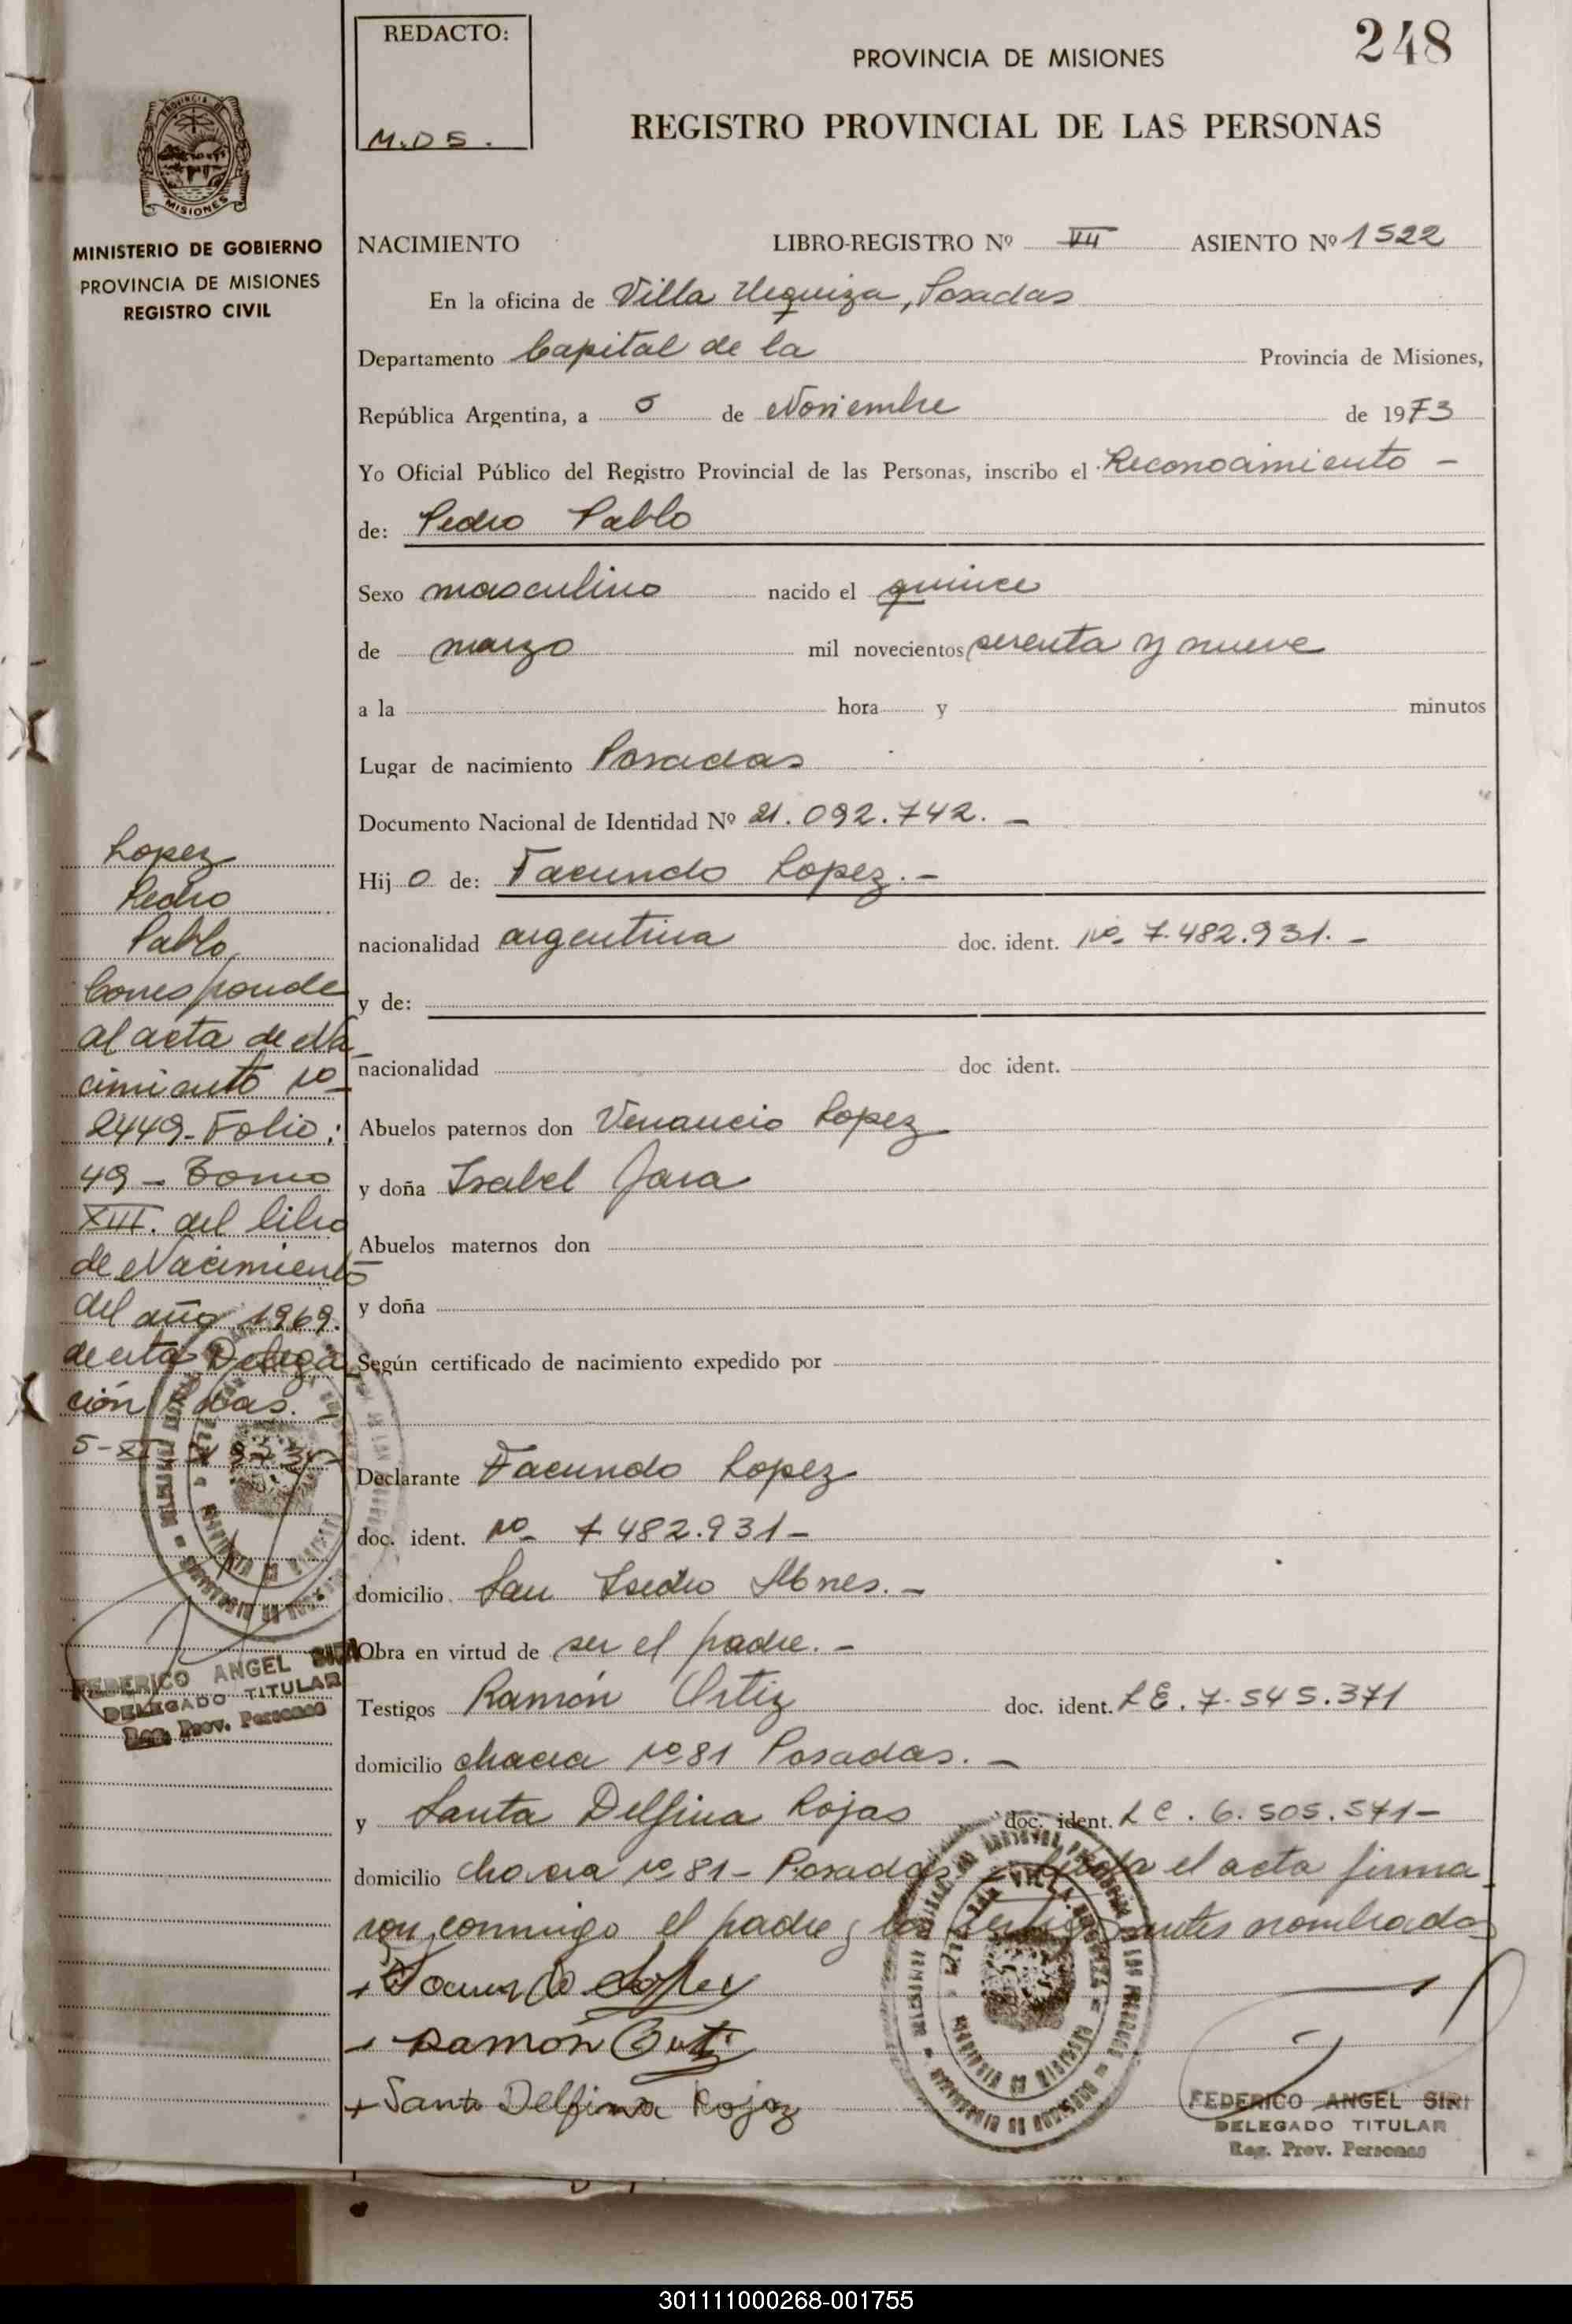 REDACTO:
M.D S.
248
PROVINCIA DE MISIONES
REGISTRO PROVINCIAL DE LAS PERSONAS
PROVINCIA DE
MISIONES
MINISTERIO DE GOBIERNO
PROVINCIA DE MISIONES
REGISTRO CIVIL
NACIMIENTO LIBRO-REGISTRO Nº VII ASIENTO Nº 1522
En la oficina de Villa Urquiza, Posadas
Departamento Capital de la Provincia de Misiones,
República Argentina, a de Noviembre de 1973
Yo Oficial Público del Registro Provincial de las Personas, inscribo el Reconocimiento -
de: Pedro Pablo
Sexo masculino nacido el quince
de marzo mil novecientos sesenta y nueve
a la hora y minutos
Lugar de nacimiento Posadas
Documento Nacional de Identidad Nº 21.092.742. -
Hij o de: Facundo Lopez. -
nacionalidad argentina doc. ident. Nº 7.482.931. -
y de:
nacionalidad doc ident.
Abuelos paternos don Venancio Lopez
y doña Isabel Jara
Abuelos maternos don
y doña
Según certificado de nacimiento expedido por
Declarante Facundo Lopez
doc. ident. Nº 7 482.931 -
domicilio San Isidro Mnes. -
Obra en virtud de ser el padre. -
Testigos Ramón Ortiz doc. ident. L E. 7. 545.371
domicilio chacra Nº 81 Posadas. -
y Santa Delfina Rojas doc. ident. L C. 6. 505. 571 -
domicilio chacra Nº 81 - Posadas - el acta firma
ron conmigo el padre y los testigos antes nombrados
Facundo Lopez
Ramón Ortiz
+ Santa Delfina Rojas
FEDERICO ANGEL SIRI
DELEGADO TITULAR
Reg. Prov. Personas
Lopez
Pedro
Pablo,
Corresponde
al acta de Na
cimiento Nº
2449 - Folio:
49 - Tomo
XIII. del libro
de Nacimiento
del año 1969.
de esta Delega
ción Pdas. -
5 - XI - 973 -
FEDERICO ANGEL SIRI
DELEGADO TITULAR
Reg. Prov. Personas
301111000268-001755